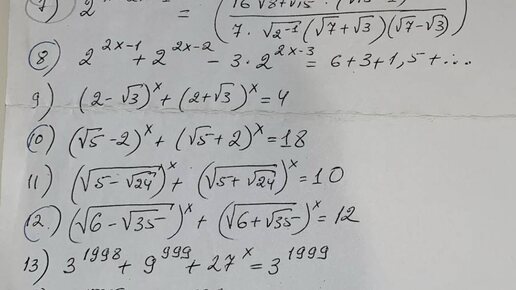 7) 2 = (16√8+√15 · (√15
7 · √2⁻¹ (√7+√3)(√7-√3))
8) 2^(2x-1) + 2^(2x-2) - 3·2^(2x-3) = 6+3+1,5+...
9) (2-√3)^x + (2+√3)^x = 4
10) (√5-2)^x + (√5+2)^x = 18
11) (√(5-√24))^x + (√(5+√24))^x = 10
12.) (√(6-√35))^x + (√(6+√35))^x = 12
13) 3^1998 + 9^999 + 27^x = 3^1999